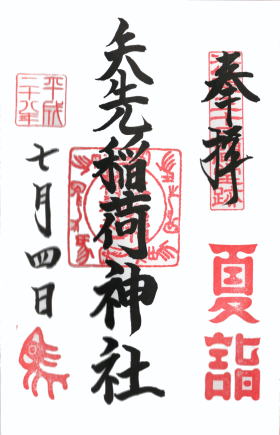 奉拝
夏詣
矢先稲荷神社
平成
二十八年
七月四日
馬